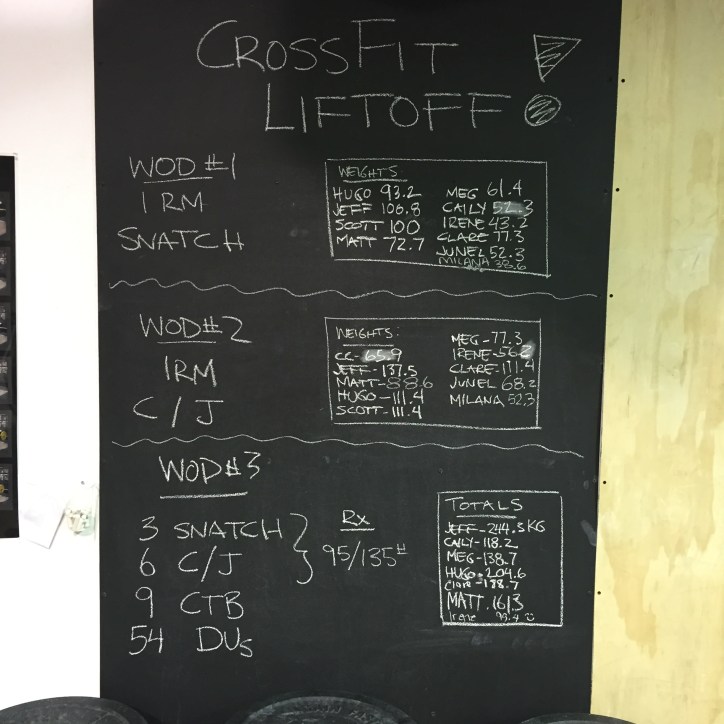 CROSSFIT
LIFTOFF
WOD #1
1 RM
SNATCH
WEIGHTS
HUGO 93.2
JEFF 106.8
SCOTT 100
MATT 72.7
MEG 61.4
CAILY 52.3
IRENE 43.2
CLARE 77.3
JUNEL 52.3
MILANA 38.6
WOD #2
1RM
C/J
WEIGHTS:
CC- 65.9
JEFF- 137.5
MATT-88.6
HUGO-111.4
SCOTT-111.4
MEG-77.3
IRENE-56.2
CLARE-111.4
JUNEL 68.2
MILANA 52.3
WOD #3
3 SNATCH
6 C/J
9 CTB
54 DUs
Rx
95/135#
TOTALS
JEFF-244.3KG
CAILY-118.2
MEG-138.7
HUGO-204.6
Clare-188.7
MATT.161.3
Irene 99.4